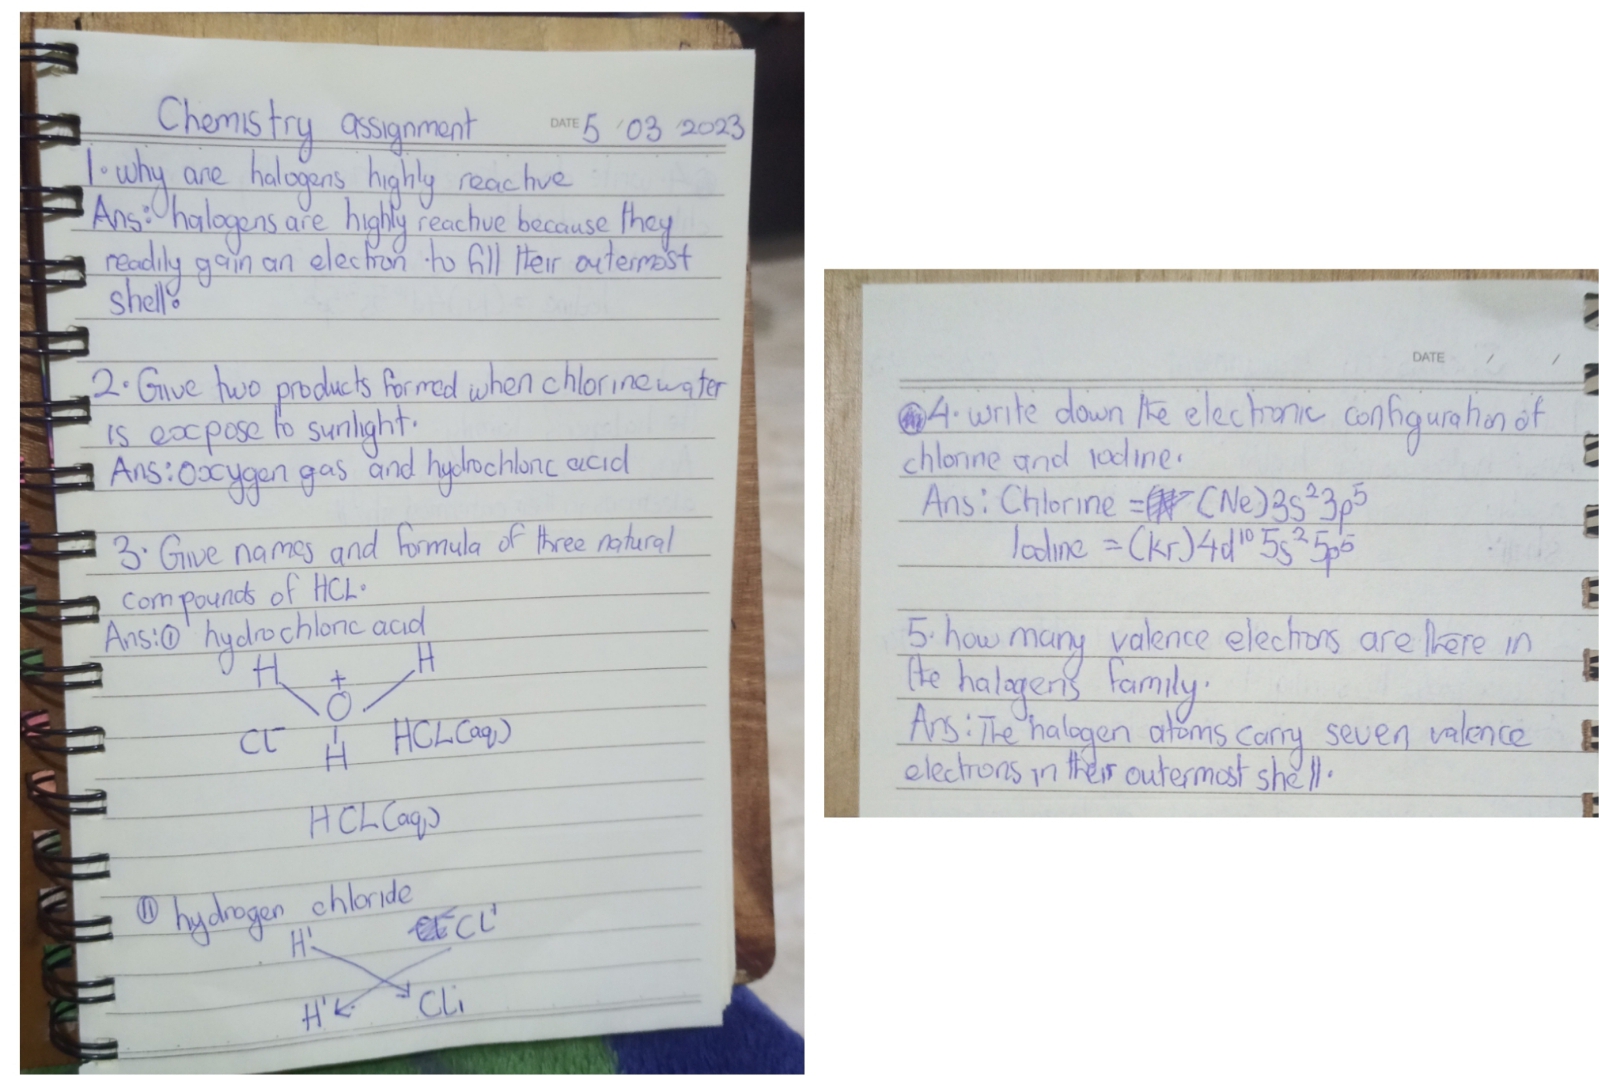 Chemistry assignment DATE 5 03 2023
1. why are halogens highly reactive
Ans: halogens are highly reactive because they
readily gain an electron to fill their outermost
shell.
2. Give two products formed when chlorine water
is expose to sunlight.
Ans: oxygen gas and hydrochloric acid
3. Give names and formula of three natural
compounds of HCL.
Ans: (i) hydrochloric acid
H + H
O
Cl⁻ H HCL(aq)
HCL(aq)
(ii) hydrogen chloride
H¹ CL¹
H¹ CLi
DATE / /
4. write down the electronic configuration of
chlorine and iodine.
Ans: Chlorine = (Ne)3s²3p⁵
Iodine = (Kr)4d¹⁰5s²5p⁵
5. how many valence electrons are there in
the halogens family.
Ans: The halogen atoms carry seven valence
electrons in their outermost shell.